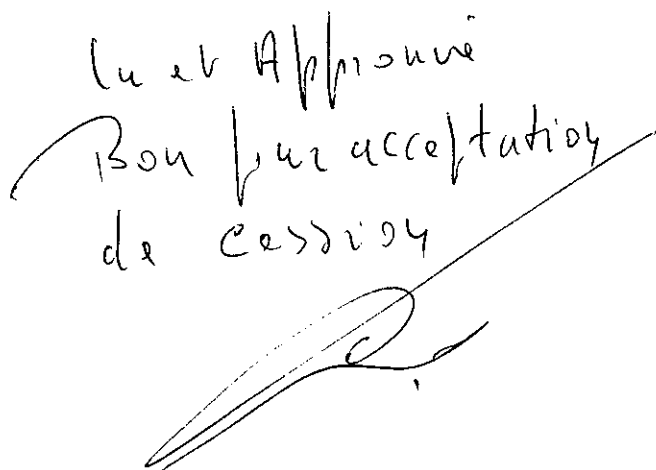 lu et Approuvé
Bon pour acceptation
de cession